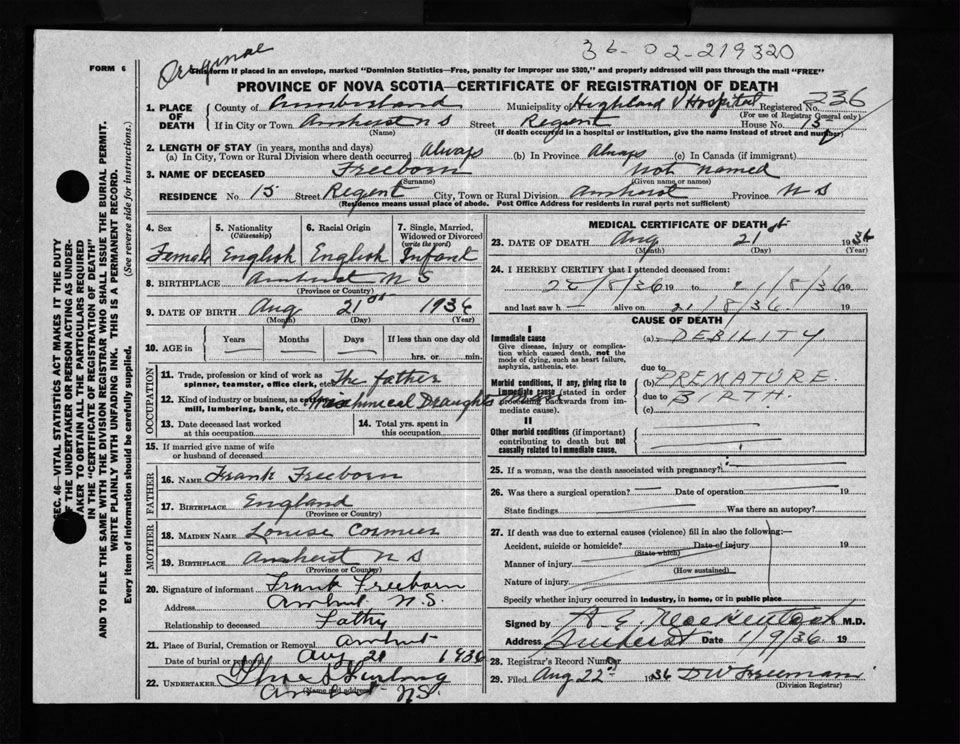 Original
36-02-219320
FORM 6
This form if placed in an envelope, marked "Dominion Statistics—Free, penalty for improper use $300," and properly addressed will pass through the mail "FREE"
PROVINCE OF NOVA SCOTIA—CERTIFICATE OF REGISTRATION OF DEATH
1. PLACE OF DEATH County of Cumberland Municipality of Highland V Hospital Registered No. 236
(For use of Registrar General only)
If in City or Town Amherst N S Street Regent House No. 15
(Name) (If death occurred in a hospital or institution, give the name instead of street and number)
2. LENGTH OF STAY (in years, months and days)
(a) In City, Town or Rural Division where death occurred Always (b) In Province Always (c) In Canada (if immigrant)
3. NAME OF DECEASED Freeborn Not Named
(Surname) (Given name or names)
RESIDENCE No. 15 Street Regent City, Town or Rural Division Amherst Province N S
(Residence means usual place of abode. Post Office Address for residents in rural parts not sufficient)
4. Sex 5. Nationality (Citizenship) 6. Racial Origin 7. Single, Married, Widowed or Divorced (write the word)
Female English English Infant
8. BIRTHPLACE Amherst N S
(Province or Country)
9. DATE OF BIRTH Aug 21st 1936
(Month) (Day) (Year)
10. AGE in Years Months Days If less than one day old
hrs. or min.
OCCUPATION
11. Trade, profession or kind of work as spinner, teamster, office clerk, etc. The father
12. Kind of industry or business, as mill, lumbering, bank, etc. Mechnical Draughtsman
13. Date deceased last worked at this occupation 14. Total yrs. spent in this occupation
15. If married give name of wife or husband of deceased
FATHER
16. NAME Frank Freeborn
17. BIRTHPLACE England
(Province or Country)
MOTHER
18. MAIDEN NAME Louise Cormier
19. BIRTHPLACE Amherst N S
(Province or Country)
20. Signature of informant Frank Freeborn
Address N.S.
Relationship to deceased Father
21. Place of Burial, Cremation or Removal Amherst
Date of burial or removal Aug 21 1936
22. UNDERTAKER
(Name and address) N.S.
MEDICAL CERTIFICATE OF DEATH
23. DATE OF DEATH Aug 21st 1936
(Month) (Day) (Year)
24. I HEREBY CERTIFY that I attended deceased from:
/8/36 19 to /8/36 19
and last saw h alive on 21/8/36 19
CAUSE OF DEATH
I
Immediate cause (a) DEBILITY
Give disease, injury or complication which caused death, not the mode of dying, such as heart failure, asphyxia, asthenia, etc.
due to
Morbid conditions, if any, giving rise to immediate cause (stated in order proceeding backwards from immediate cause). (b) PREMATURE
due to BIRTH.
(c)
II
Other morbid conditions (if important) contributing to death but not causally related to immediate cause.
25. If a woman, was the death associated with pregnancy?
26. Was there a surgical operation? Date of operation 19
State findings Was there an autopsy?
27. If death was due to external causes (violence) fill in also the following:—
Accident, suicide or homicide? Date of injury 19
(State which)
Manner of injury
(How sustained)
Nature of injury
Specify whether injury occurred in industry, in home, or in public place
Signed by M.D.
Address Amherst Date 1/9/36 19
28. Registrar's Record Number
29. Filed Aug 22nd 1936 D W Freeman
(Division Registrar)
SEC. 46—VITAL STATISTICS ACT MAKES IT THE DUTY
OF THE UNDERTAKER OR PERSON ACTING AS UNDERTAKER TO OBTAIN ALL THE PARTICULARS REQUIRED
IN THE "CERTIFICATE OF REGISTRATION OF DEATH"
AND TO FILE THE SAME WITH THE DIVISION REGISTRAR WHO SHALL ISSUE THE BURIAL PERMIT.
WRITE PLAINLY WITH UNFADING INK. THIS IS A PERMANENT RECORD.
Every item of information should be carefully supplied. (See reverse side for instructions.)